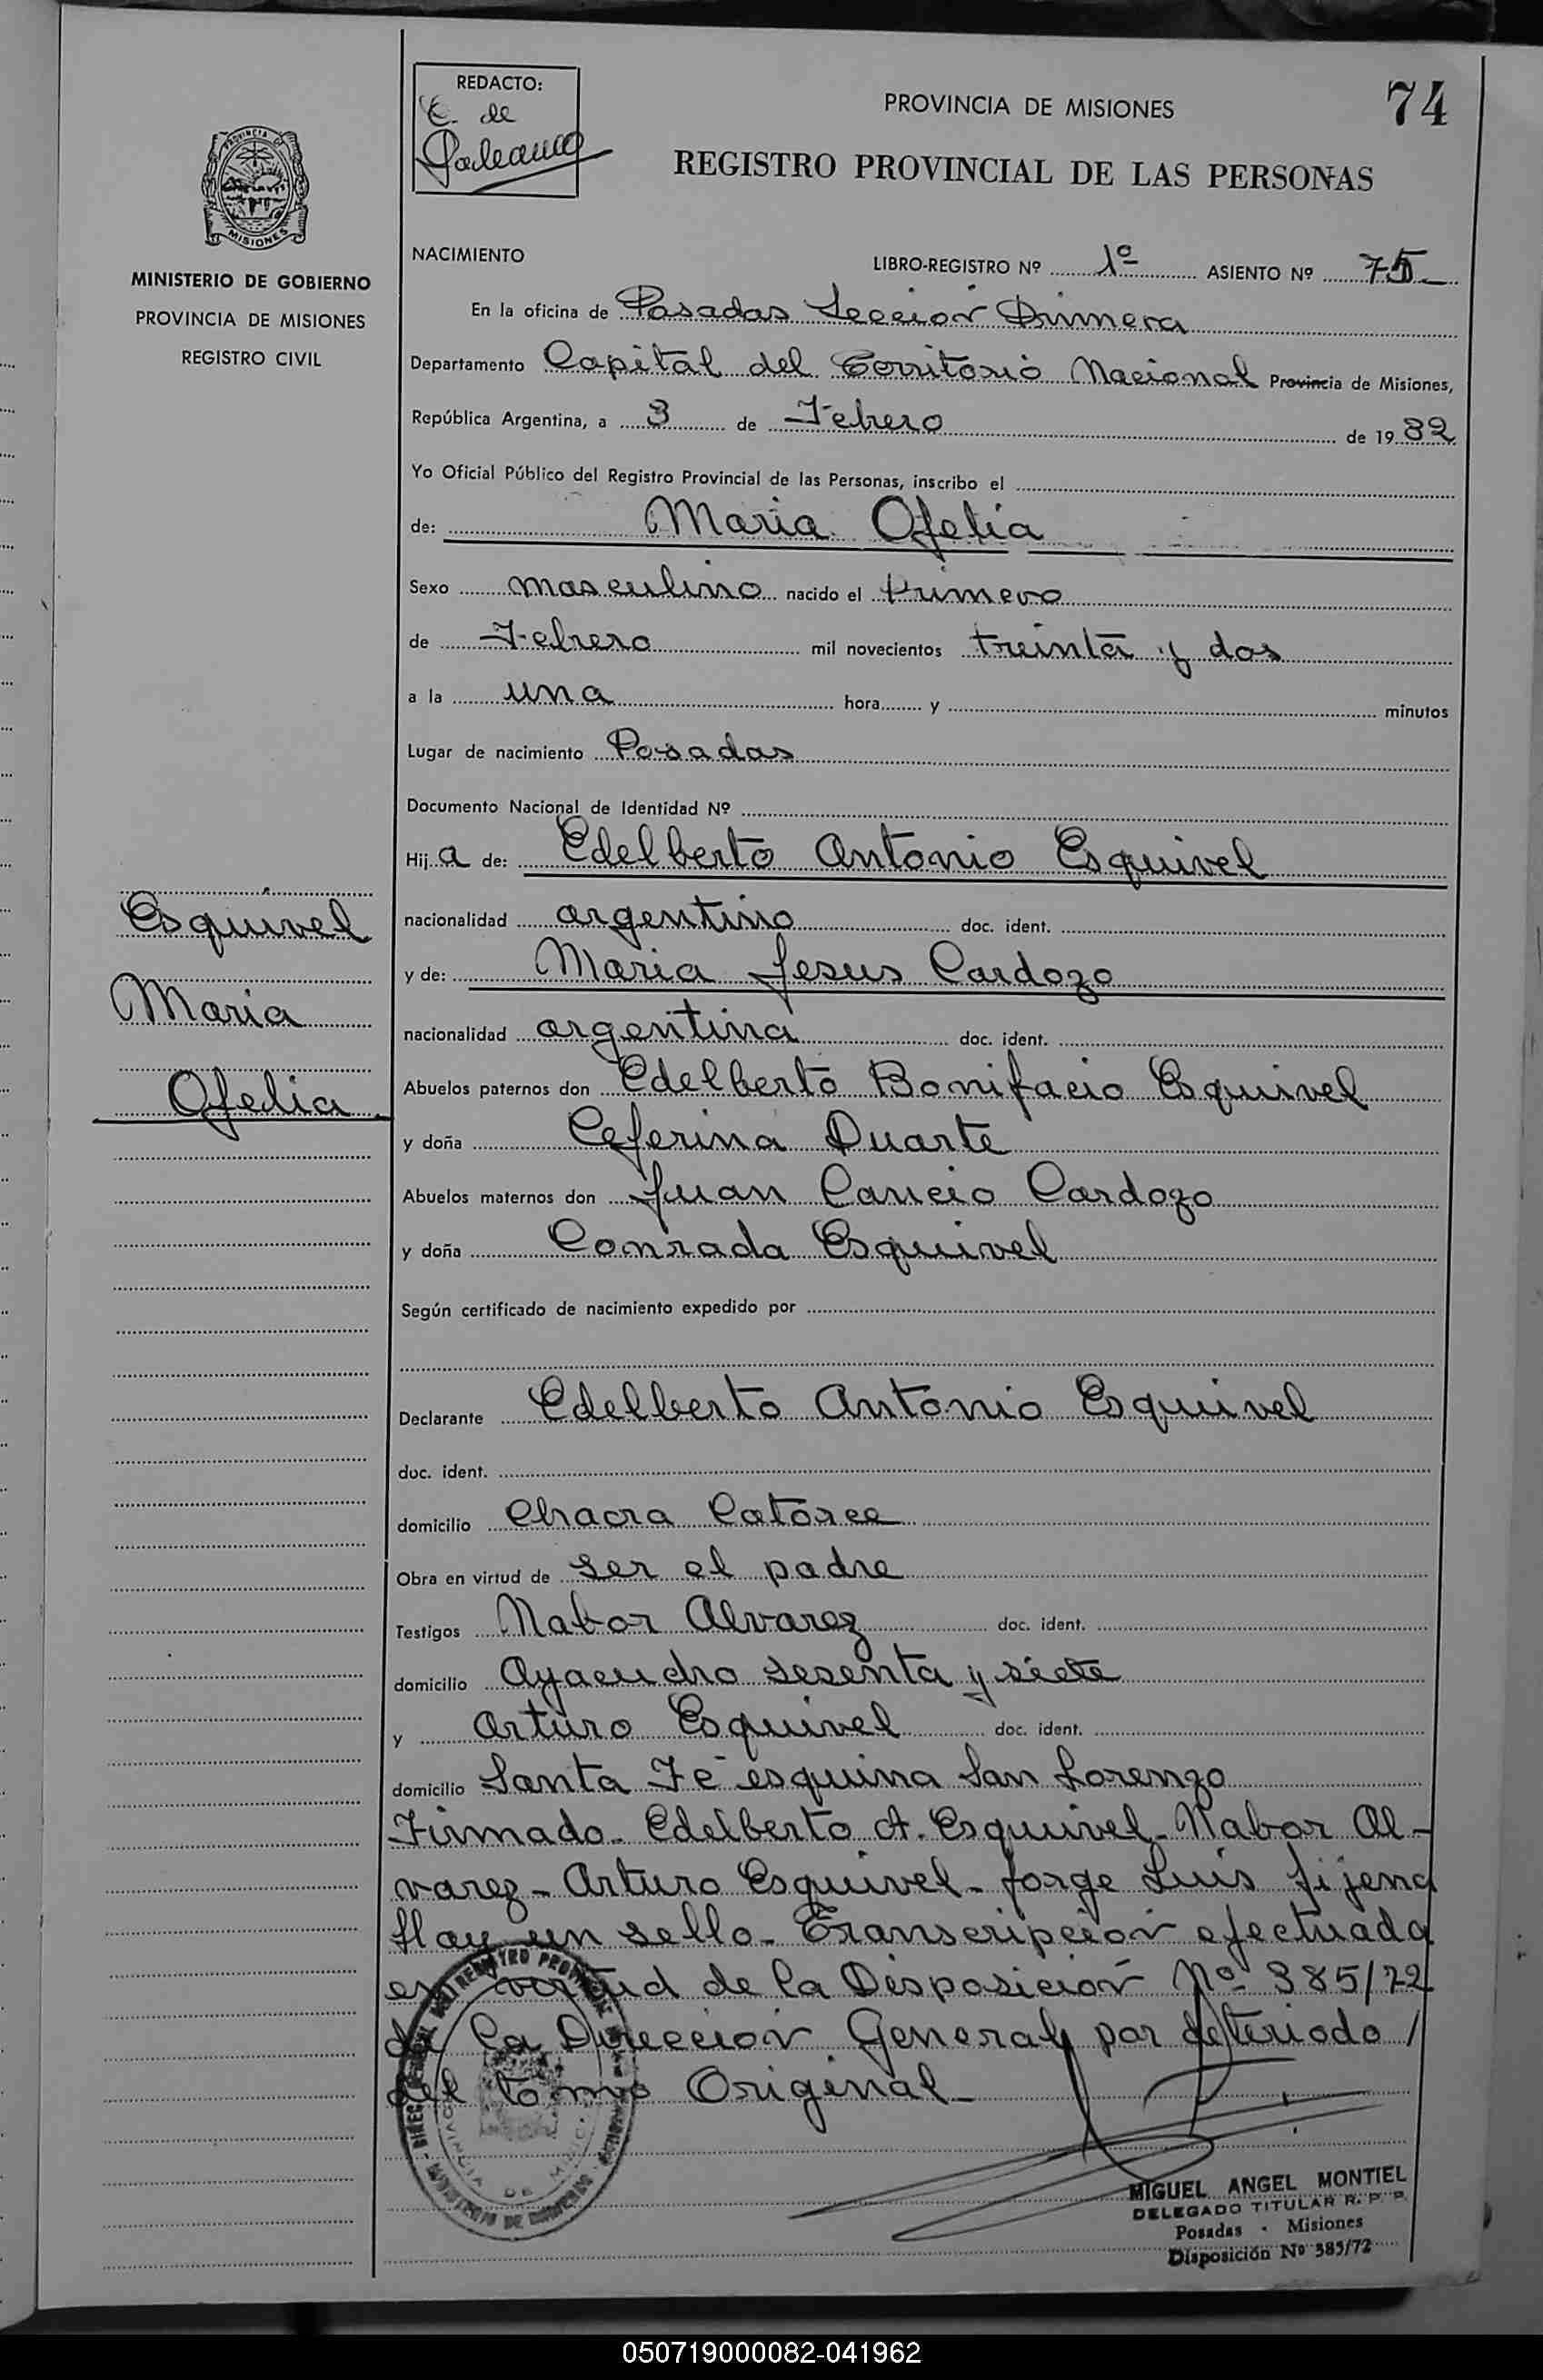 REDACTO:
E. de
Galeano
PROVINCIA DE MISIONES
74
REGISTRO PROVINCIAL DE LAS PERSONAS
PROVINCIA DE
MISIONES
MINISTERIO DE GOBIERNO
PROVINCIA DE MISIONES
REGISTRO CIVIL
NACIMIENTO
LIBRO-REGISTRO Nº 1º ASIENTO Nº 75
En la oficina de Posadas Sección Primera
Departamento Capital del Territorio Nacional Provincia de Misiones,
República Argentina, a 3 de Febrero de 1932
Yo Oficial Público del Registro Provincial de las Personas, inscribo el
de: Maria Ofelia
Sexo masculino nacido el Primero
de Febrero mil novecientos treinta y dos
a la una hora y minutos
Lugar de nacimiento Posadas
Documento Nacional de Identidad Nº
Hija de: Edelberto Antonio Esquivel
nacionalidad argentino doc. ident.
y de: Maria Jesus Cardozo
nacionalidad argentina doc. ident.
Abuelos paternos don Edelberto Bonifacio Esquivel
y doña Ceferina Duarte
Abuelos maternos don Juan Cancio Cardozo
y doña Conrada Esquivel
Según certificado de nacimiento expedido por
Declarante Edelberto Antonio Esquivel
doc. ident.
domicilio Chacra Catorce
Obra en virtud de ser el padre
Testigos Nabor Alvarez doc. ident.
domicilio Ayacucho sesenta y siete
y Arturo Esquivel doc. ident.
domicilio Santa Fé esquina San Lorenzo
Firmado - Edelberto A. Esquivel - Nabor Al-
varez - Arturo Esquivel - Jorge Luis Fijena
Hay un sello - Transcripción efectuada
en virtud de la Disposición Nº 385/72
de la Dirección General por deteriodo /
del tomo Original -
Esquivel
Maria
Ofelia
MIGUEL ANGEL MONTIEL
DELEGADO TITULAR R. P. P.
Posadas - Misiones
Disposición Nº 385/72
050719000082-041962